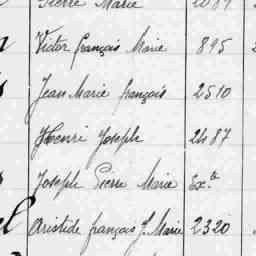 Pierre Marie
Victor françois Marie 895
Jean Marie françois 2510
Henri Joseph 2487
Joseph Pierre Marie Ex.t
Aristide françois J. Marie 2320